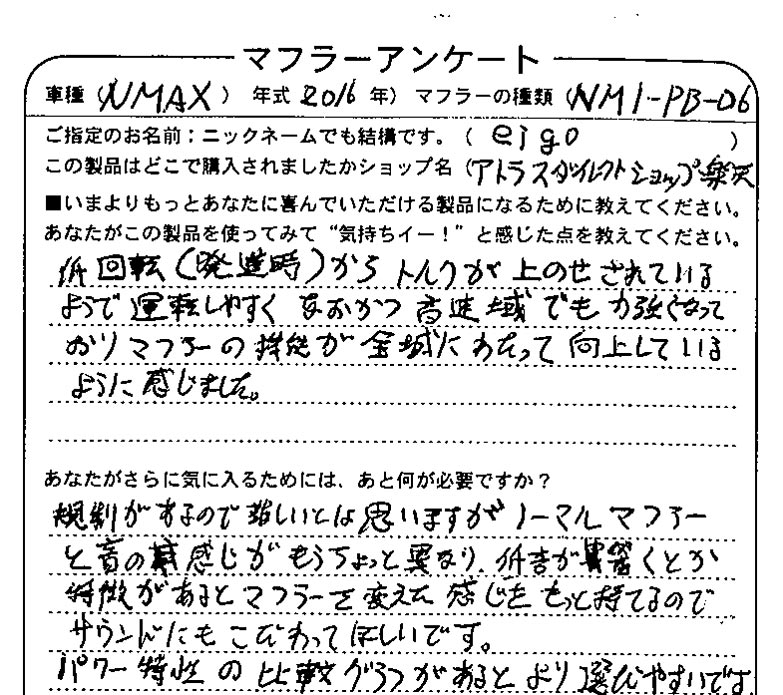 マフラーアンケート
車種 (NMAX) 年式 2016 年) マフラーの種類 (NM1-PB-06
ご指定のお名前：ニックネームでも結構です。( eigo )
この製品はどこで購入されましたかショップ名 (アトラスダイレクトショップ 楽天
■いまよりもっとあなたに喜んでいただける製品になるために教えてください。
あなたがこの製品を使ってみて“気持ちイー！”と感じた点を教えてください。
低回転(発進時)から トルクが 上のせされている
ようで 運転しやすく なおかつ 高速域でも 力強くなって
おり マフラーの 性能が 全域に わたって 向上している
ように 感じました。
あなたがさらに気に入るためには、あと何が必要ですか？
規制があるので 難しいとは 思いますが ノーマルマフラー
と音の 感じが もうちょっと 異なり、低音が 響くとか
特徴があると マフラーを 変えた 感じを もっと持てるので
サウンドにも こだわって ほしいです。
パワー特性の 比較グラフがあると より 選びやすいです